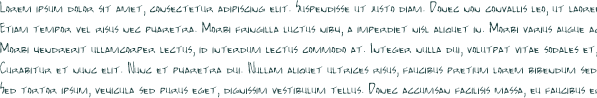 Lorem ipsum dolor sit amet, consectetur adipiscing elit. Suspendisse ut justo diam. Donec non convallis leo, ut laoreet
Etiam tempor vel risus nec pharetra. Morbi fringilla luctus nibh, a imperdiet nisl aliquet in. Morbi varius augue
Morbi hendrerit ullamcorper lectus, id interdum lectus commodo at. Integer nulla dui, volutpat vitae sodales et,
Curabitur et nunc elit. Nunc et pharetra dui. Nullam aliquet ultrices risus, faucibus pretium lorem bibendum sed
Sed tortor ipsum, vehicula sed purus eget, dignissim vestibulum tellus. Donec accumsan facilisis massa, eu faucibus